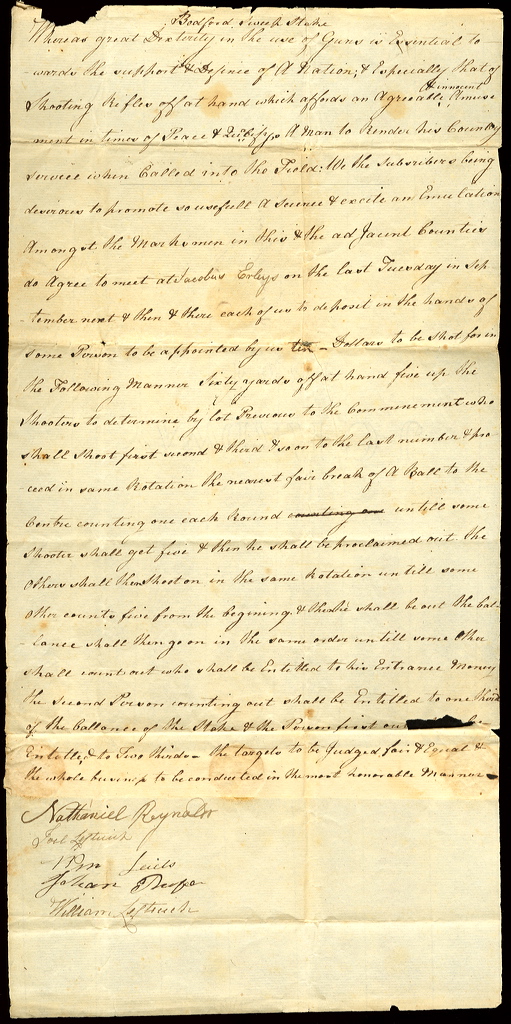 Bedford Sweep Stake
Whereas great Dexterity in the use of Guns is Essential to
-wards the support & Defence of A Nation, & Especially that of
Shooting Rifles off at hand which affords an Agreeable & innocent Amuse
ment in times of Peace & A Man to Render his Country
Service when Called into the Field: We the Subscribers being
desirous to promote so usefull A Science & excite an Emulation
Amongst the Marksmen in this & the adjacent Counties
do Agree to meet at Jacobus Erlys on the last Tuesday in Sep
-tember next & then & there each of us to deposit in the hands of
some Person to be appointed by us ten - Dollars to be shot for in
the Following Manner Sixty yards off at hand five up the
Shooters to determine by lot Previous to the Commencement who
shall shoot first second & third & so on to the last number & pro
-ceed in same Rotation the nearest fair break of A Ball to the
Centre counting one each Round counting one untill some
Shooter shall get five & then he shall be proclaimed out the
Others shall then shoot on in the same Rotation untill some
other counts five from the begining & then he shall be out the bal
-lance shall then go on in the same order untill some Other
shall count out who shall be Entitled to his Entrance Money
the second Person counting out shall be Entitled to one third
of the ballance of the Stake & the Person first out be
Entitled to Two thirds - the targets to be Judged fair & Equal &
the whole business to be conducted in the most honorable Manner -
Nathaniel Reynolds
Joel Leftwich
Wm
Johan
William Leftwich